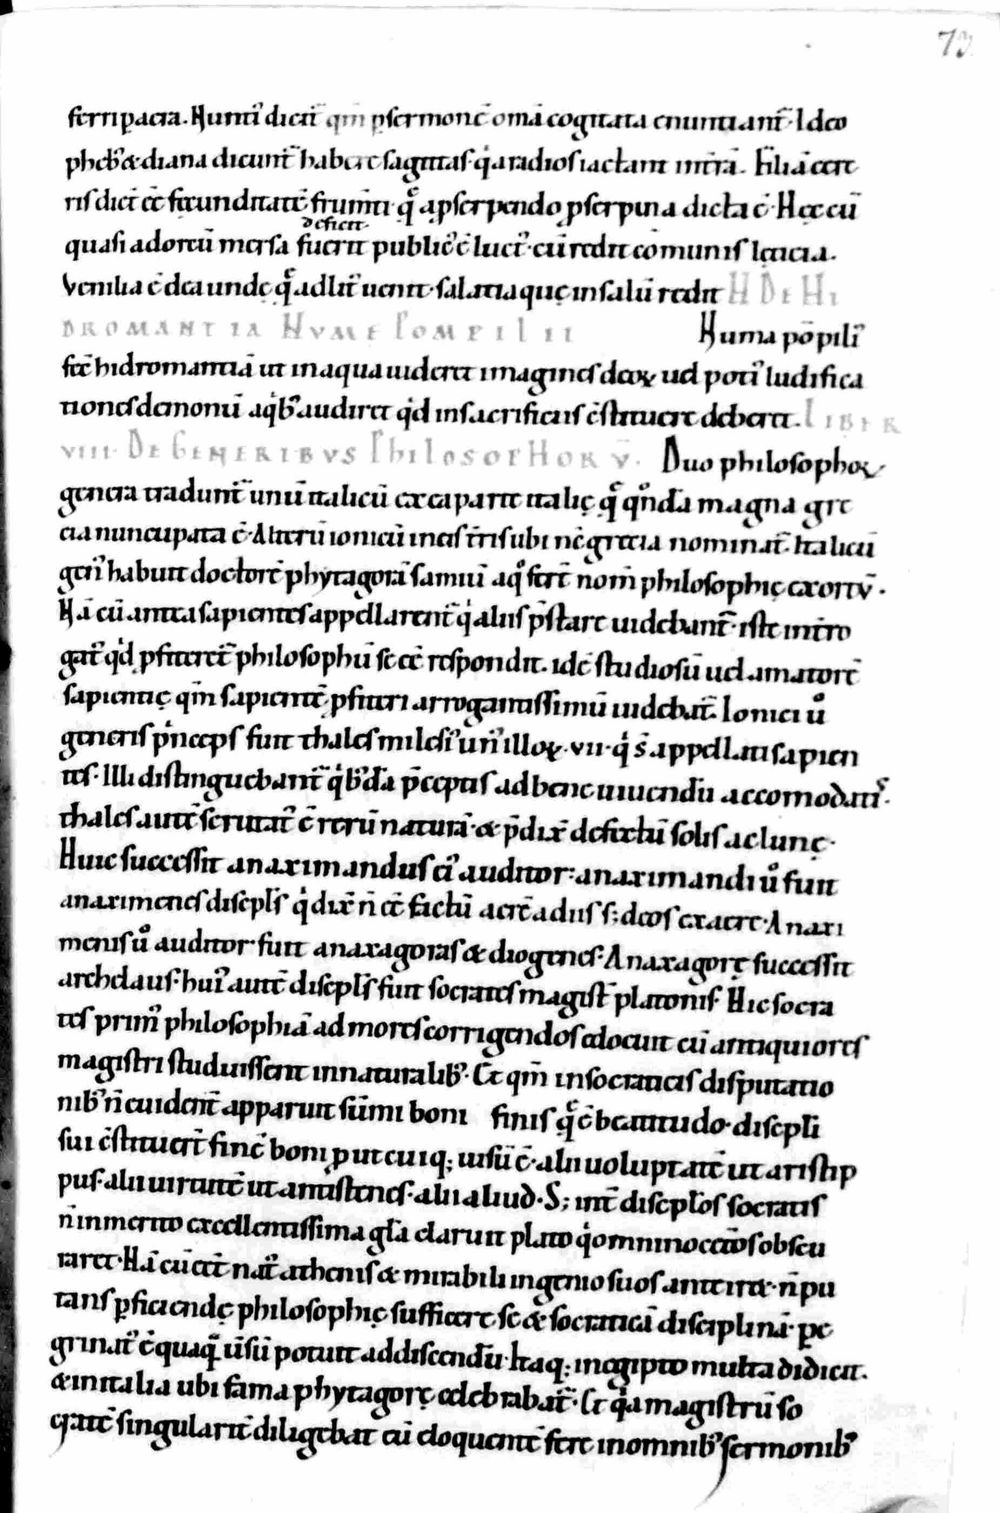 73
ferri pacta. Nuntiꝰ dicit̄ qm̄ ꝑ sermonē om̄a cogitata enuntiant̄. Ideo
pheb᷒ & diana dicunt̄ habere sagittas. q̇a radios iactant in t̄rā. Filiā cere
ris dict̄ eē fecunditatē frum̄ti. q̄ a ꝓserpendo ꝓserpina dicta ē. Hec cū
deficeret
quasi ad orcū mersa fuerit publicꝰ ē luctꝰ. cū redit cōmunis lęticia.
Venilia ē dea unde q̄ ad lit᷒ uenit. salatia quę in salū redit
DE HI
DROMANTIA NUME POMPILII Numa pōpiliꝰ
fec̄ hidromantiā ut in aqua uideret imagines deoꝝ uel potiꝰ ludifica
tiones demonū a qi᷒b᷒ audiret qd̄ in sacrificiis c̄stituere deberet. LIBER
VIII. DE GENERIBUS PHILOSOPHORŪ. Duo philosophoꝝ
genera tradunt̄ unū italicū ex ea parte italię q̄ qn̄dā magna gre
cia nuncupata ē. Alterū ionicū in eis t̄ris ubi nc̄ grecia nominat̄. Italicū
genꝰ habuit doctorē phytagorā samiū a quo fert̄ nom̄ philosophię exortū.
Nā cū antea sapientes appellarent̄ qi aliis p̄stare uidebant̄. iste int̄ro
gatꝰ qd̄ ꝓfiteret̄ philosophū se eē respondit. id ē studiosū uel amatorē
sapientię qm̄ sapientē ꝓfiteri arrogantissimū uidebat̄. Ionici ů
generis p̄nceps fuit thales milesiꝰ unꝰ illoꝝ. vii. qi s̄ appellati sapien
tes. Illi distinguebant̄ qi᷒b᷒dā p̄ceptis ad bene uiuendū accomodatis.
thales autē scrutatꝰ ē rerū naturā. & p̄dix̄ defectū solis ac lunę.
Huic successit anaximandus eiꝰ auditor: anaximandi ů fuit
anaximenes discipls̄ qi dix̄ n̄ eē factū aerē a diis s; deos ex aere. Anaxi
menis ů auditor fuit anaxagoras & diogenes. Anaxagorę successit
archelaus. huiꝰ autē discipls̄ fuit socrates magist̄ platonis. Hic socra
tes primꝰ philosophiā ad mores corrigendos edocuit cū antiquiores
magistri studuissent in naturalib᷒. Et qm̄ in socraticis disputatio
nib᷒ n̄ euident̄ apparuit sūmi boni finis q̄ ē beatitudo. discipli
sui c̄stituert̄ finē boni ꝓut cuiq; uisū ē. alii uoluptatē ut aristip
pus. alii uirtutē ut antistenes. alii aliud. S; int̄ disciplos socratis
n̄ inmerito excellentissima gl̄a claruit plato qi omnino cet̄os obscu
raret. Nā cū eēt natꝰ athenis & mirabili ingenio suos anteiret. n̄ pu
tans ꝑficiendę philosophię sufficere se & socraticā disciplinā. ꝑe
grinatꝰ ē quaqua uersū potuit addiscendū. Itaq; in egipto multa didicit.
& in italia ubi fama phytagorę celebrabat̄. Et q̇a magistrū so
cratē singularit̄ diligebat cū eloquentē fere in omnib᷒ sermonib᷒